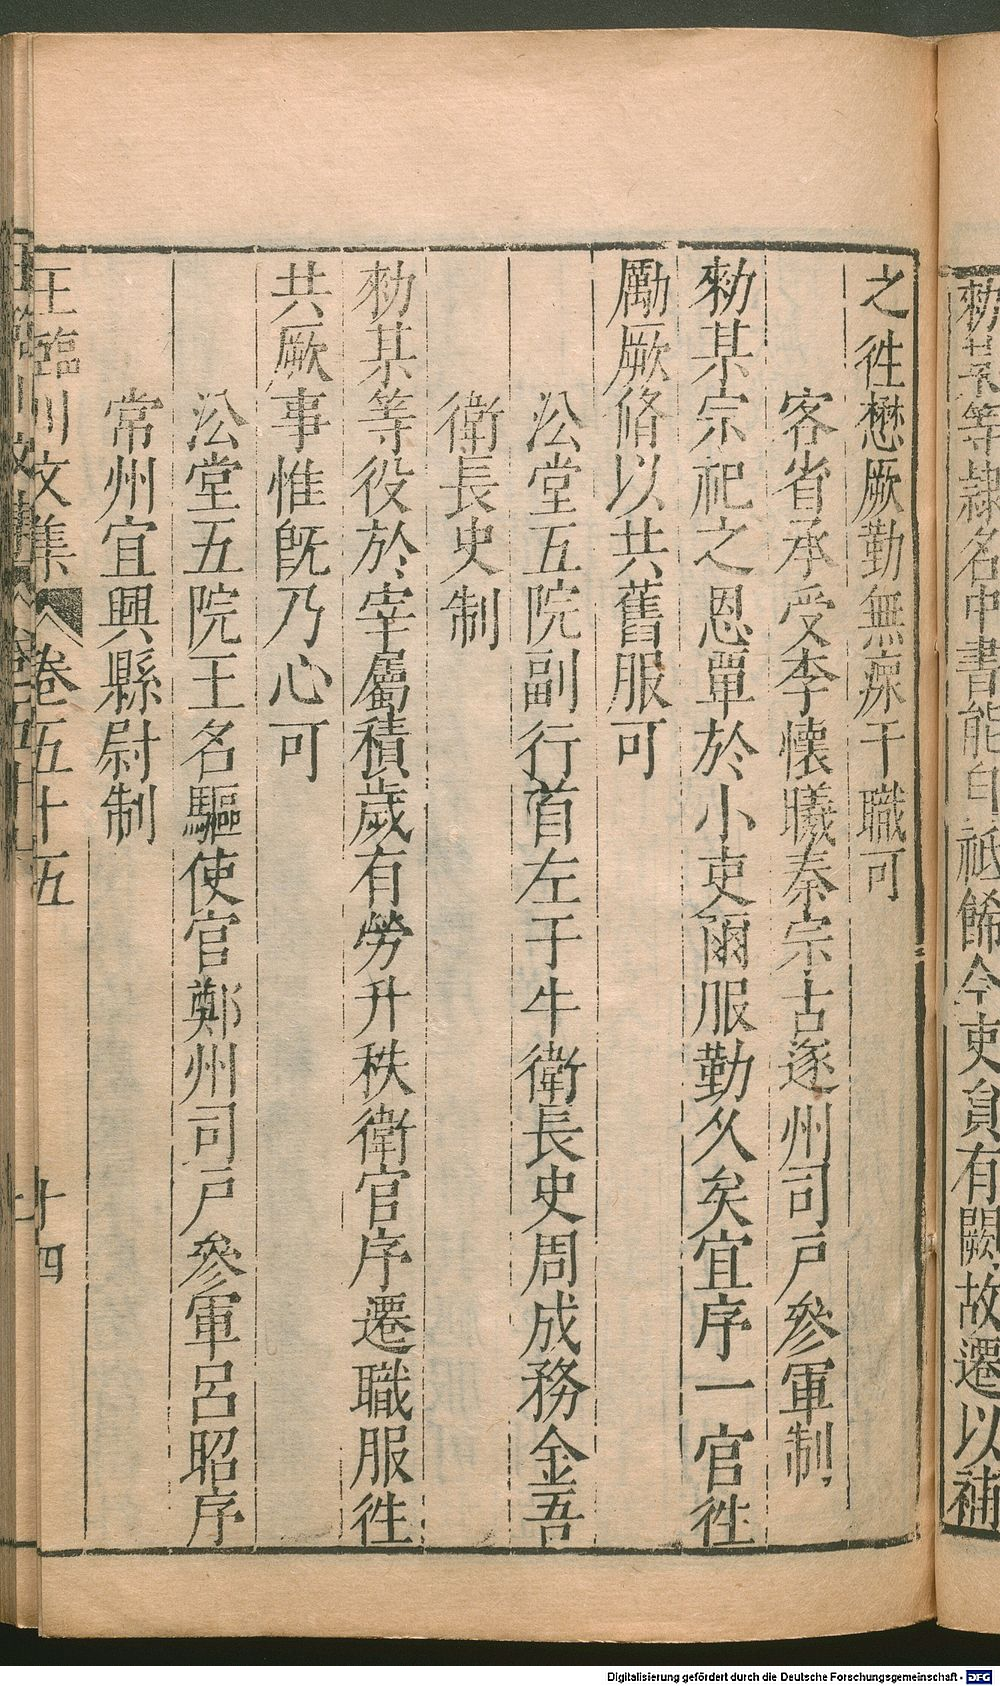 勑某等隸名中書能自祗飭今吏員有闕故遷以補
之徃懋厥勤無瘝干職可
客省承受李懐曦秦宗古逐州司戸參軍制
勑某宗祀之恩覃於小吏爾服勤久矣宜序一官徃
勵厥脩以共舊服可
㳂堂五院副行首左千牛衛長史周成務金吾
衛長史制
勑某等役於宰屬積歲有勞升秩衛官序遷職服徃
共厥事惟旣乃心可
㳂堂五院王名驅使官鄭州司戸參軍呂昭序
常州宜興縣尉制
王臨川文集 卷五十五 十四
Digitalisierung gefördert durch die Deutsche Forschungsgemeinschaft - DFG